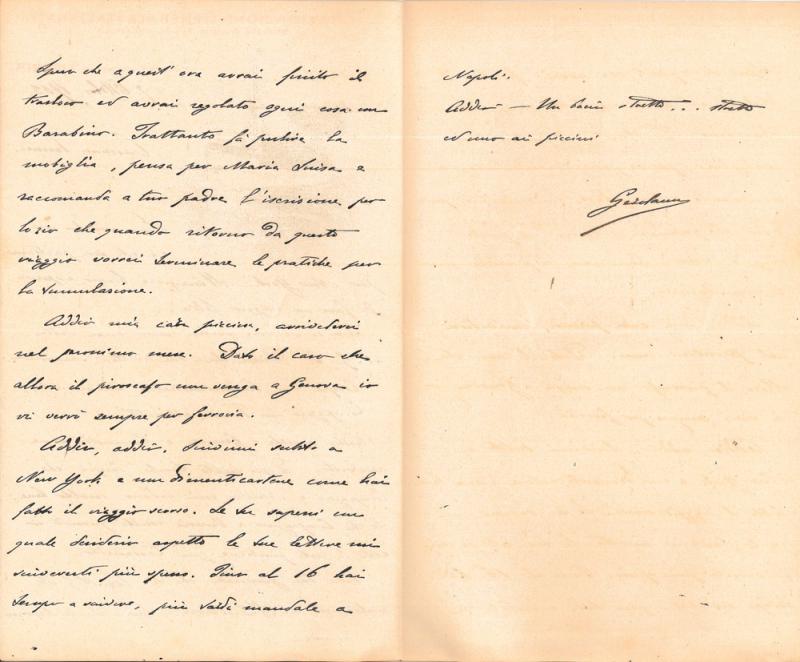 Spero che a quest'ora avrai finito il
trasloco ed avrai regolato ogni cosa con
Barabino. Frattanto fa pulire la
mobiglia, pensa per Maria Luisa e
raccomanda a tuo padre l'iscrizione per
lo zio che quando ritorno da questo
viaggio vorrei terminare le pratiche per
la tumulazione.
Addio mia cara piccina, arrivederci
nel prossimo mese. Dato il caso che
allora il piroscafo non venga a Genova io
vi verrò sempre per ferrovia.
Addio, addio. Scrivimi subito a
New York e non dimenticartene come hai
fatto il viaggio scorso. Se tu sapessi con
quale desiderio aspetto le tue lettere mi
scriveresti più spesso. Fino al 16 hai
tempo a scrivere, più tardi mandale a
Napoli.
Addio — Un bacio stretto... stretto
ed uno ai piccini